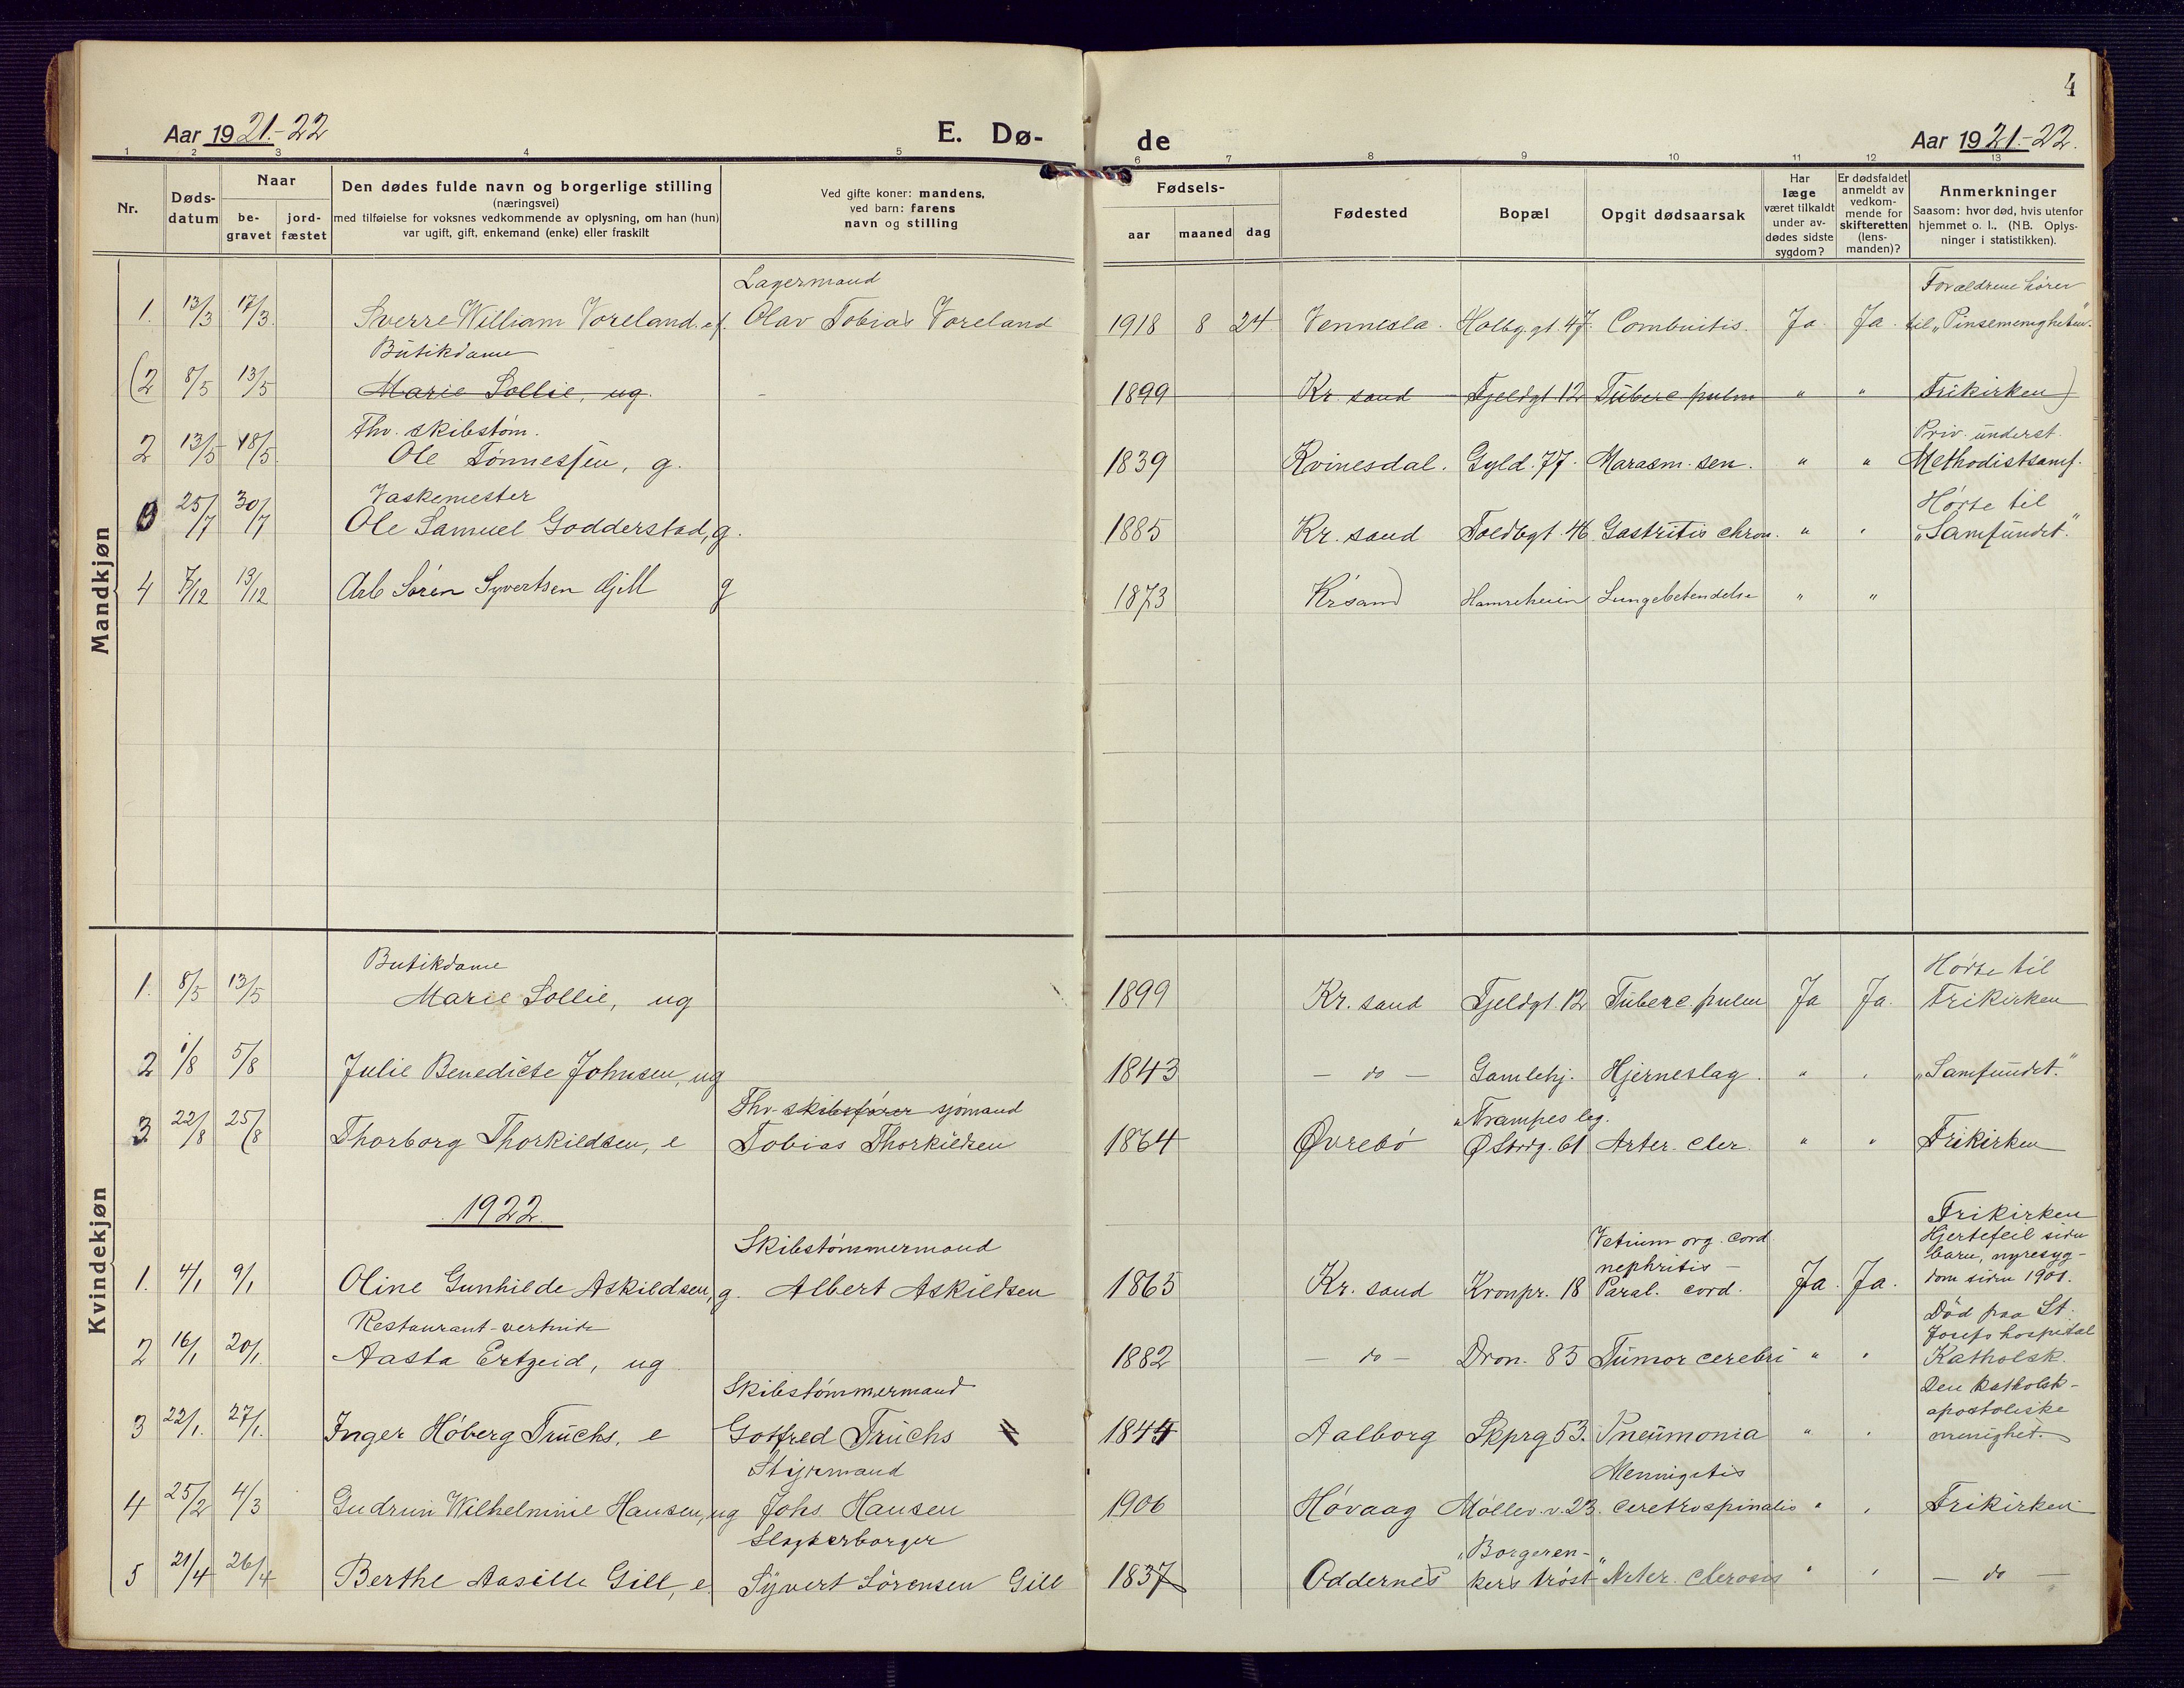 4
Aar 1921.-22 E. Dø- de Aar 1921.-22.
1 2 3 4 5 6 7 8 9 10 11 12 13
Nr. Døds-datum Naar be-gravet jord-fæstet
Den dødes fulde navn og borgerlige stilling
(næringsvei)
med tilføielse for voksnes vedkommende av oplysning, om han (hun)
var ugift, gift, enkemand (enke) eller fraskilt
Ved gifte koner: mandens,
ved barn: farens
navn og stilling
Fødsels-
aar maaned dag
Fødested
Bopæl
Opgit dødsaarsak
Har
læge
været tilkaldt
under av-
dødes sidste
sygdom?
Er dødsfaldet
anmeldt av
vedkom-
mende for
skifteretten
(lens-
manden)?
Anmerkninger
Saasom: hvor død, hvis utenfor
hjemmet o. l.. (NB. Oplys-
ninger i statistikken).
Mandkjøn
Lagermand Forældrene hører
1. 13/3 17/3. Sverre William Voreland. Olav Tobias Voreland 1918 8 24 Vennesla. Holbg.gt. 47. Combuitis. Ja. Ja. til „Pinsemenigheten".
Butikdame
(2 8/5 13/5 Marie Sollie, ug. - 1899 Kr sand Fjeldgt 12 Tuberc pulm " " Frikirken)
Fhv. skibstøm. Priv. underst.
2 13/5 18/5. Ole Tønnessen, g. 1839 Kvinesdal. Gyld. 77. Marasm. sen. " " Methodistsamf.
Vaskemester Hørte til
3 25/7 30/7 Ole Samuel Godderstad, g. 1885 Kr. sand Toldbgt. 46 Gastritis chron. " " „Samfundet."
4 7/12 13/12 Arb Søren Syvertsen Gjill g 1873 Krsand Hamreheien Lungebetendelse " "
Kvindekjøn
Butikdame Hørte til
1. 8/5 13/5 Marie Sollie, ug 1899 Kr. sand Fjeldgt. 12 Tuberc. pulm Ja Ja. Frikirken
2 1/8 5/8 Julie Benedicte Johnsen, ug 1843 - do - Gamlehj. Hjerneslag. " " „Samfundet."
Fhv. skibsfører sjømand „Trampes leg.
3 22/8 25/8 Thorborg Thorkildsen, e Tobias Thorkildsen 1864 Øvrebø Ø Strdg. 61 Arter. cler. " " Frikirken
1922.
Frikirken
Skibstømmermand Vetium org. cord Hjertefeil siden
nephritis - barn, nyresyg-
1. 4/1 9/1 Oline Gunhilde Askildsen, g. Albert Askildsen 1865 Kr. sand Kronpr. 18 Paral. cord. Ja. Ja. dom siden 1901.
Restaurant-vertinde Død paa St.
Josefs hospital
2 16/1 20/1. Aasta Ertzeid, ug 1882 - do - Dron. 85 Tumor cerebri " " Katholsk.
Skibstømmermand Den katholsk-
apostoliske
3 22/1. 27/1. Inger Høberg Truchs, e Gotfred Truchs 1844 Aalborg Skprg 53. Pneumonia " " menighet.
Styrmand Mennigitis
4 25/2 4/3 Gudrun Wilhelmine Hansen, ug Johs. Hansen 1906 Høvaag Møllev. v. 23. cerebrospinalis " " Frikirken
Slagterborger „Borgeren-
5 21/4 26/4 Berthe Aasille Gill, e Syvert Sørensen Gill 1837 Oddernes kers trøst" Arter. clerosis " " - do -